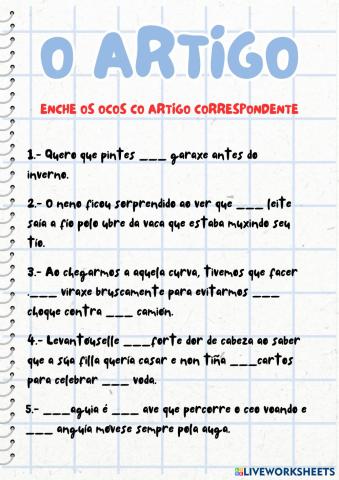 O ARTIGO
ENCHE OS OCOS CO ARTIGO CORRESPONDENTE
1.- Quero que pintes ___ garaxe antes do
inverno.
2.- O neno ficou sorprendido ao ver que ___ leite
saía a fío polo ubre da vaca que estaba muxindo seu
tío.
3.- Ao chegarmos a aquela curva, tivemos que facer
.___ viraxe bruscamente para evitarmos ___
choque contra ___ camión.
4.- Levantouselle ___forte dor de cabeza ao saber
que a súa filla quería casar e non tiña ___cartos
para celebrar ___ voda.
5.- ___aguia é ___ ave que percorre o ceo voando e
___ anguía móvese sempre pola auga.
LIVEWORKSHEETS